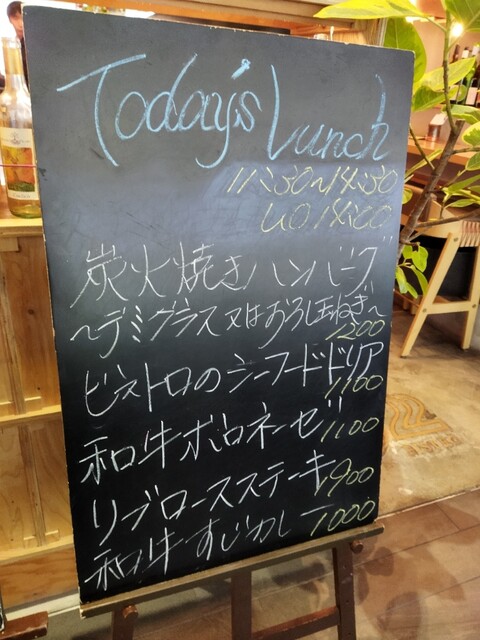 Today's Lunch
11:30~14:30
L.O 14:00
炭火焼きハンバーグ
~デミグラス又はおろし玉ねぎ~
1200
ビストロのシーフードドリア
1100
和牛ボロネーゼ 1100
リブロースステーキ 1900
和牛すじカレー 1000